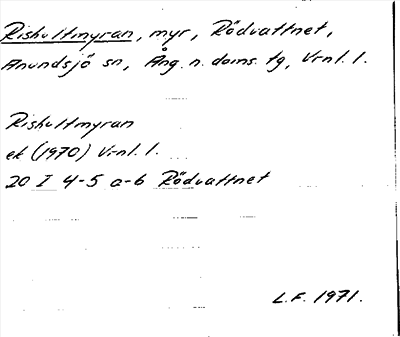 Rishultmyran, myr, Rödvattnet,
Anundsjö sn, Ång. n. doms. tg, Vrnl. l.
Rishultmyran
ek (1970) Vrnl. l.
20 I 4-5 a-b Rödvattnet
L.F. 1971.